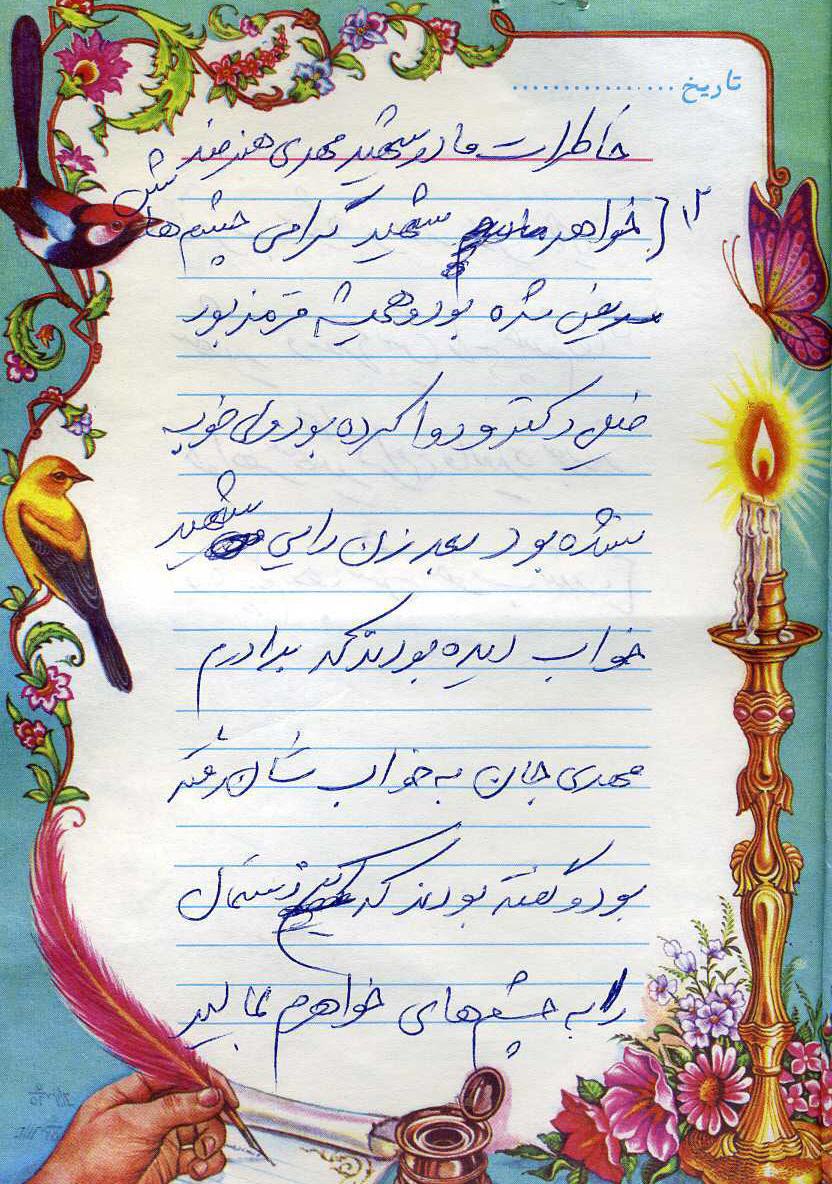 تاریخ ...............
خاطرات مادر شهید مهدی هنرمند
۱۲ [ خواهر شهید گرامی چشم‌هاش
مریض شده بود و همیشه قرمز بود
خیلی دکتر و دوا کرده بود ولی خوب
نشده بود بعد زن دایی شهید
خواب دیده بودند که برادرم
مهدی جان به خواب شان رفته
بود و گفته بودند که این دستمال
را به چشم‌های خواهرم بمالید